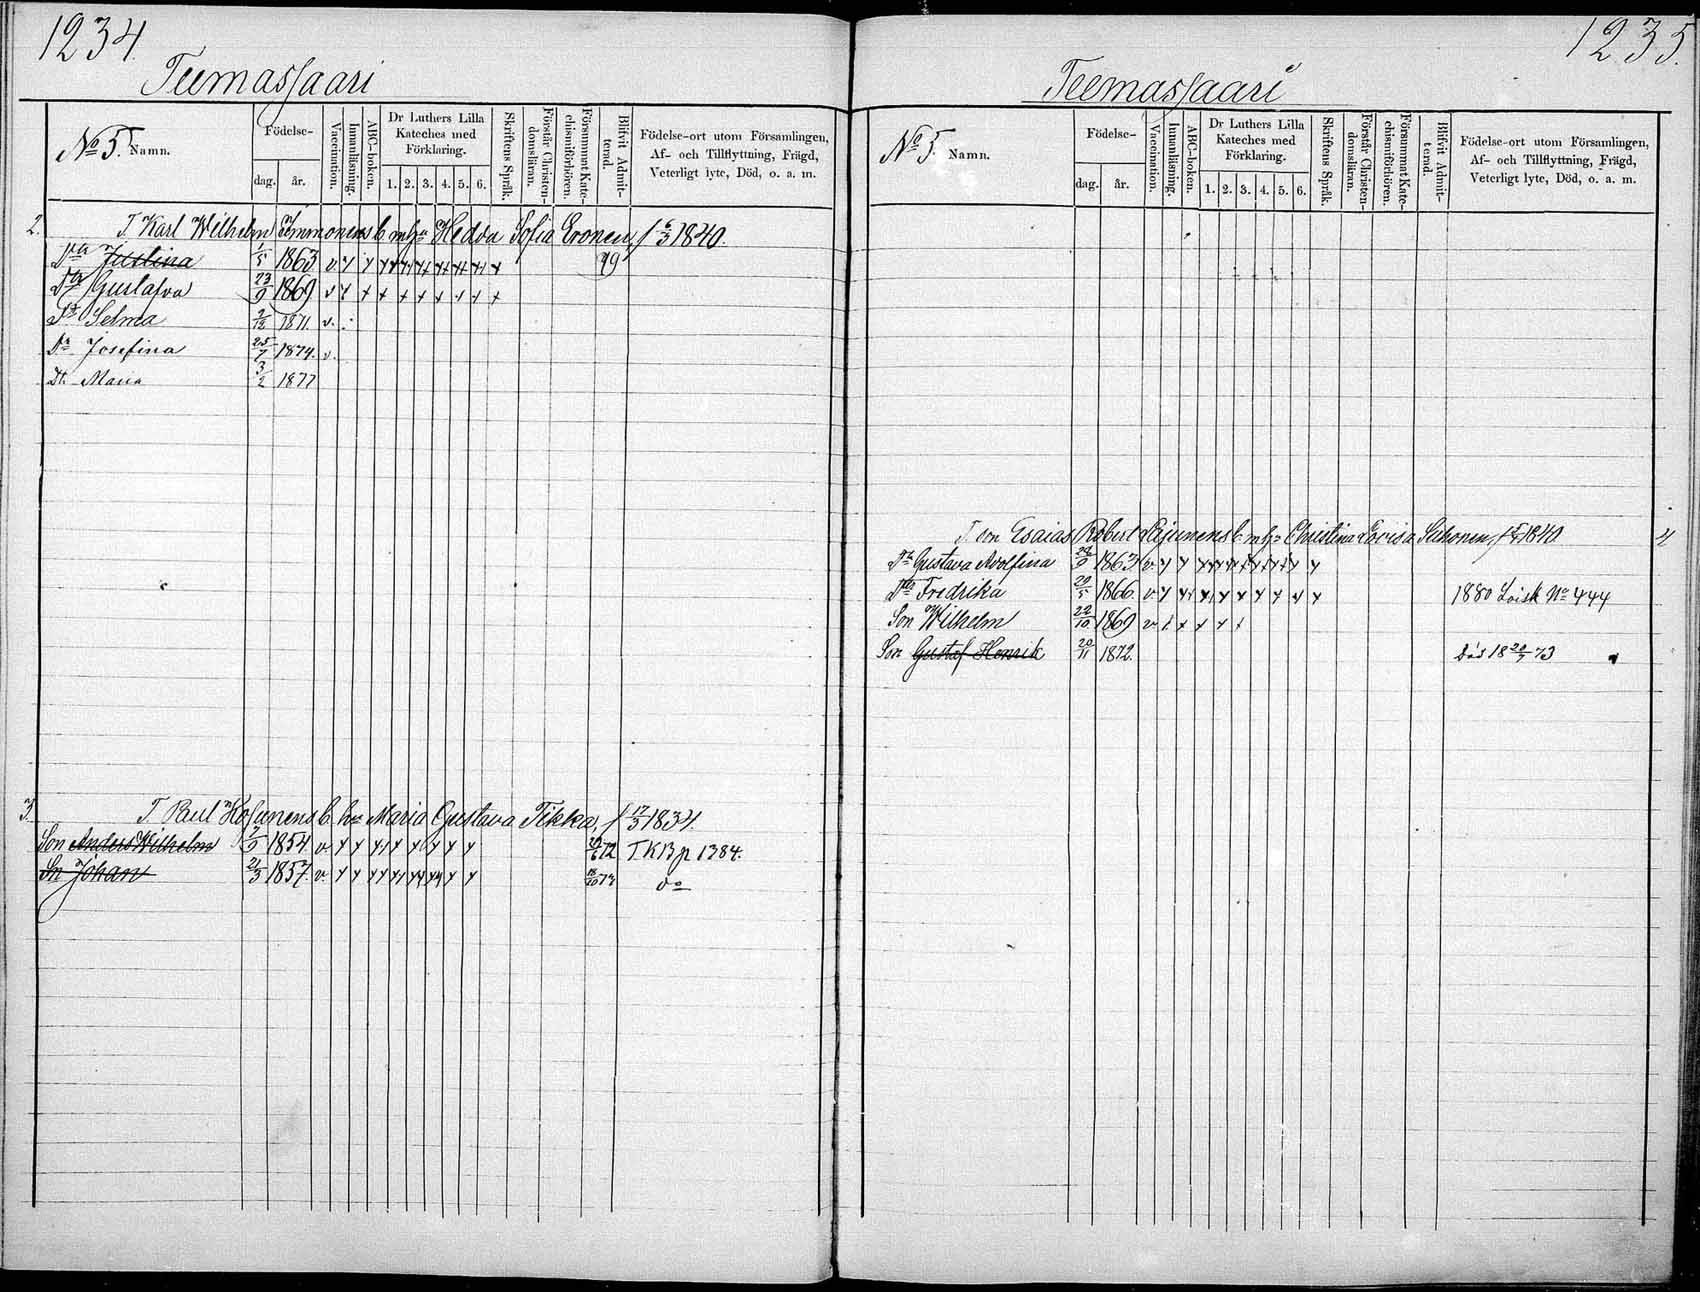 1234.
Teemassaari
No 5. Namn.
Födelse-
dag. år.
Vaccination.
Innanläsning.
ABC-boken.
Dr Luthers Lilla
Kateches med
Förklaring.
1. 2. 3. 4. 5. 6.
Skriftens Språk.
Förstår Christen-
domsläran.
Försummat Kate-
chismiförhören.
Blifvit Admit-
terad.
Födelse-ort utom Församlingen,
Af- och Tillflyttning, Frägd,
Veterligt lyte, Död, o. a. m.
2. T. Karl Wilhelm Immonens b mh:u Hedva Sofia Eronen, f 6/3 1840.
Dtr Justina 1/5 1863 v. 79
Dtr Gustafva 23/9 1869 v
Dr Selma 2/12 1871. v.
Dr Josefina 25/7 1874. v.
Dt. Maria 3/2 1877
3. T Paul b Maria Gustava Tikka, f 17/3 1834.
Son Anders Wilhelm 7/9 1854. v. 72 T.K.B p 1384.
Sn Johan 21/3 1857. v. 18/10 73 do
1235.
Teemassaari
No 5. Namn.
Födelse-
dag. år.
Vaccination.
Innanläsning.
ABC-boken.
Dr Luthers Lilla
Kateches med
Förklaring.
1. 2. 3. 4. 5. 6.
Skriftens Språk.
Förstår Christen-
domsläran.
Försummat Kate-
chismiförhören.
Blifvit Admit-
terad.
Födelse-ort utom Församlingen,
Af- och Tillflyttning, Frägd,
Veterligt lyte, Död, o. a. m.
T. son Esaias Robert b mh:u Christina Lovisa 1840 4
Dtr Gustava Adolfina 1863. v.
Dtr Fredrika 20/5 1866. v. 1880 Loisk No 444
Son Wilhelm 22/10 1869 v.
Son Gustaf Henrik 20/11 1872. Död 18 20/7 73